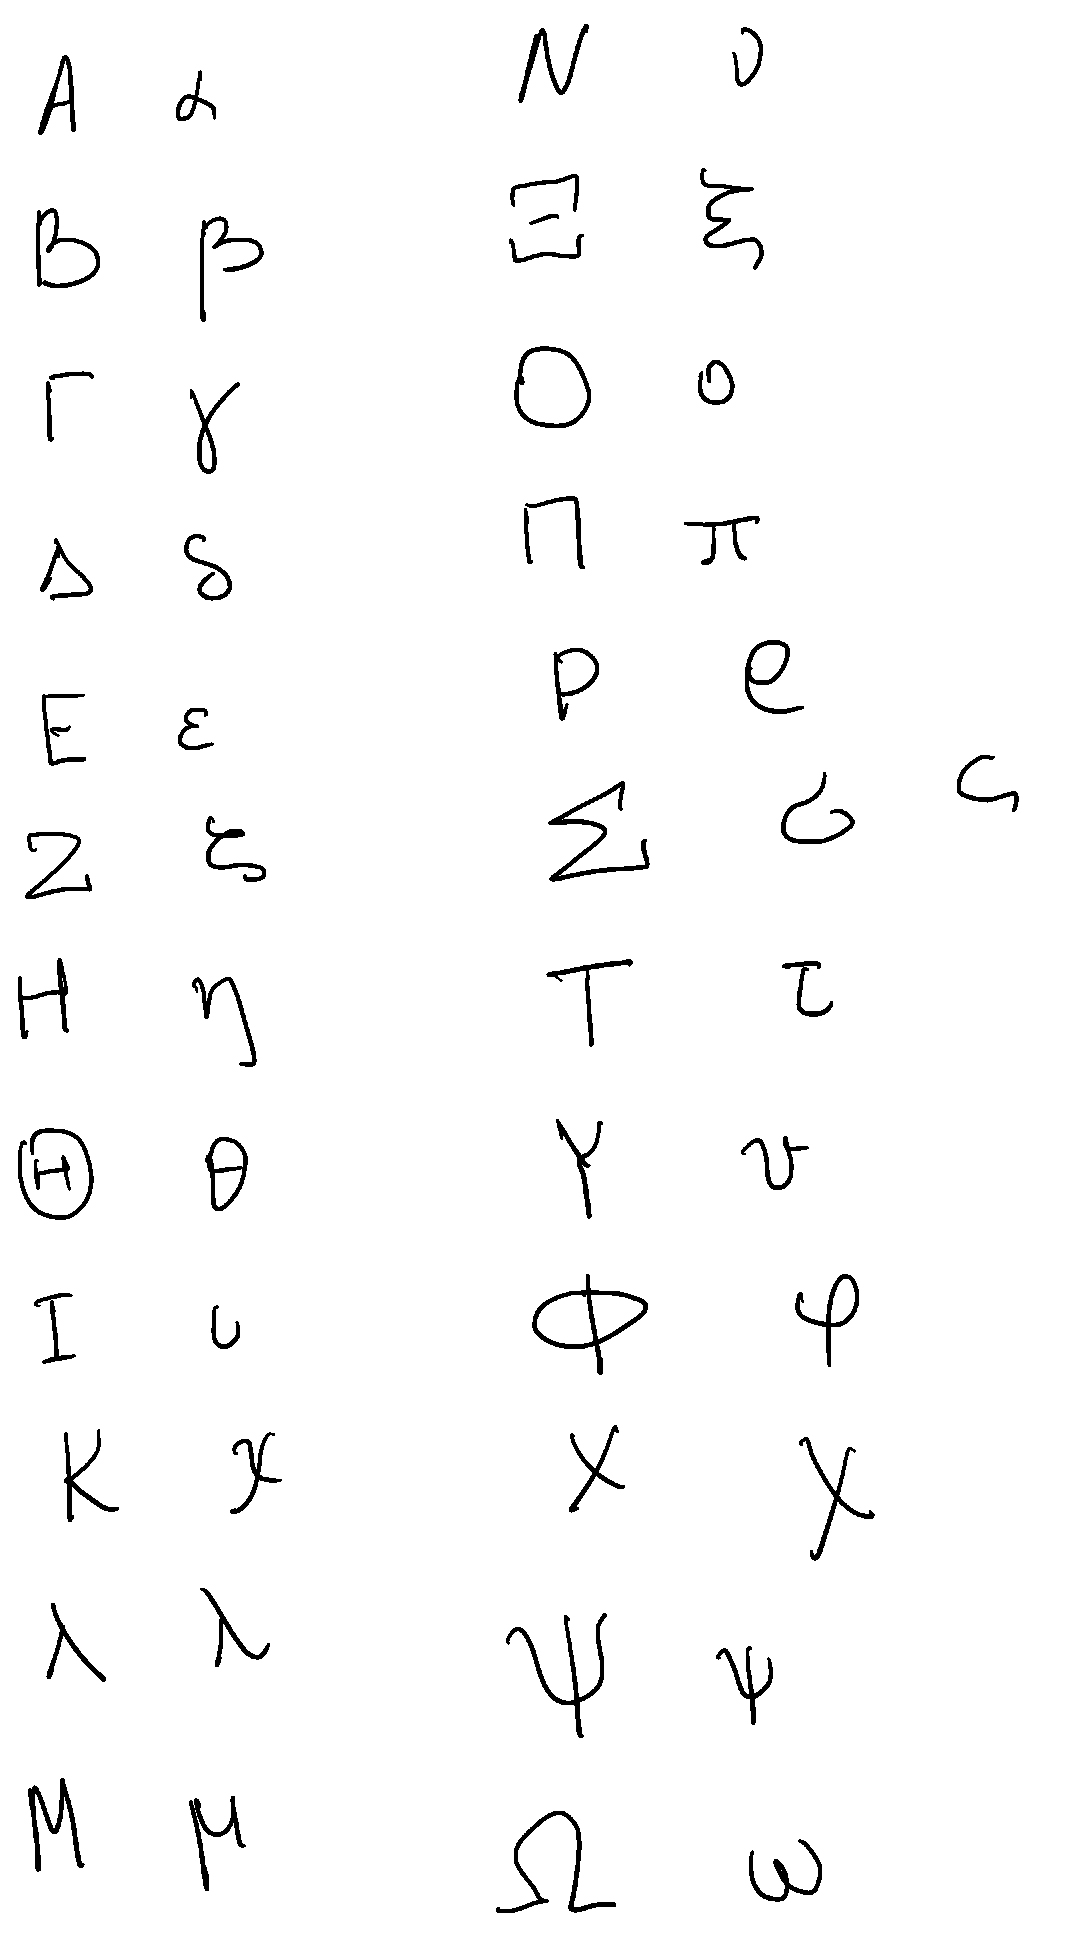 Α α
Β β
Γ γ
Δ δ
Ε ε
Ζ ζ
Η η
Θ θ
Ι ι
Κ κ
λ λ
Μ μ
Ν ν
Ξ ξ
Ο ο
Π π
Ρ ρ
Σ σ ς
Τ τ
Υ υ
Φ φ
Χ χ
Ψ ψ
Ω ω